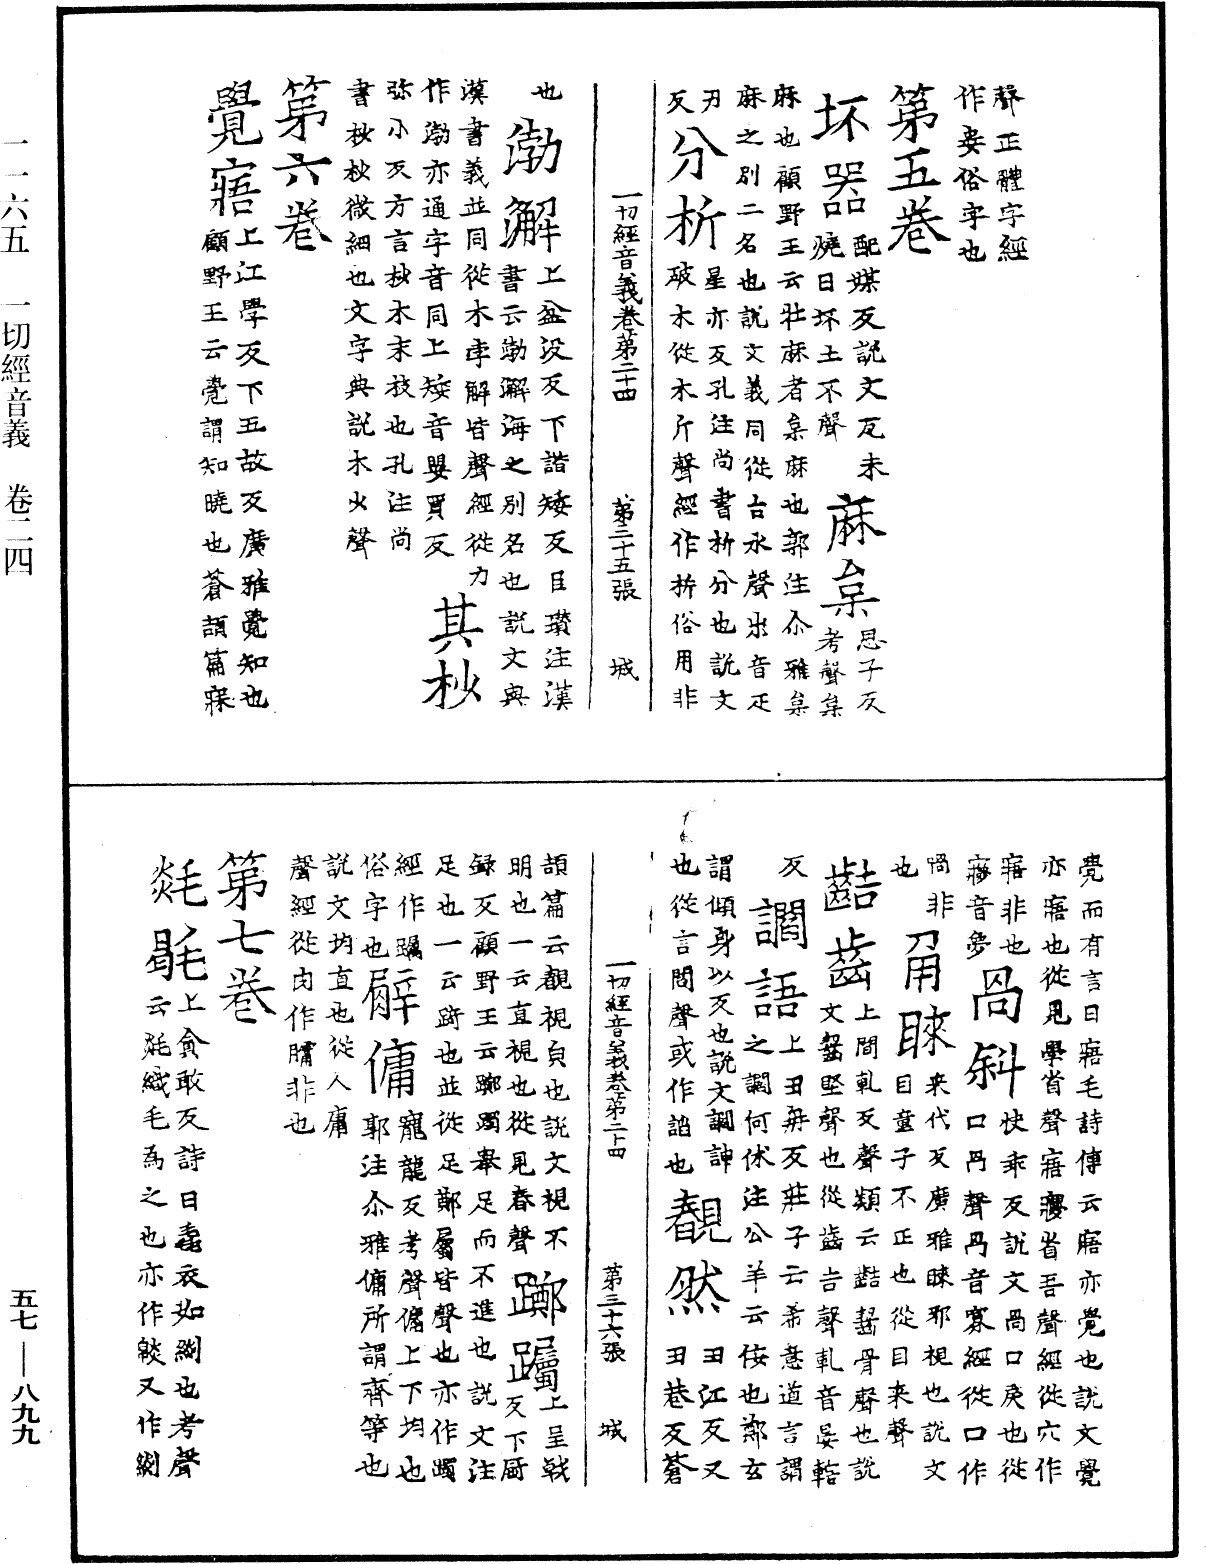 聲正體字經
作㚣俗字也
第五卷
坏器配媒反說文瓦未
燒曰坏土不聲
麻枲思子反
考聲枲
麻也顧野王云牡麻者枲麻也郭注尒雅枲
麻之別二名也說文義同從台𣏟聲𣏟音疋
刃
反
分析星亦反孔注尚書析分也說文
破木從木斤聲經作㭊俗用非
也
渤澥上盆沒反下諧矮反臣瓚注漢
書云渤澥海之別名也說文與
漢書義並同從水孛解皆聲經從力
作渤亦通字音同上矮音嬰買反
其杪
弥小反方言杪木末枝也孔注尚
書杪杪微細也文字典說木少聲
第六卷
覺寤上江學反下五故反廣雅覺知也
顧野王云覺謂知曉也蒼頡篇寐
一切經音義卷第二十四 第三十五張 城
覺而有言曰寤毛詩傳云寤亦覺也說文覺
亦寤也從見學省聲寤㝱省吾聲經從穴作
窹非也
㝱音夢
咼斜快乖反說文咼口戾也從
口冎聲冎音寡經從口作
喎非
也
角睞來代反廣雅睞邪視也說文
目童子不正也從目來聲
𪘂齒上間軋反聲類云𪘂齧骨聲也說
文齧堅聲也從齒吉聲軋音晏轄
反
讇語上丑冉反莊子云希意道言謂
之讇何休注公羊云佞也鄭玄
謂傾身以反也說文讇
也從言閻聲或作諂也
覩然丑江反又
丑巷反蒼
頡篇云覩視皃也說文視不
明也一云直視也從見舂聲
躑躅上呈戟
反下厨
録反顧野王云躑躅舉足而不進也說文注
足也一云踦也並從足鄭屬皆聲也亦作躅
經作躅
俗字也
傭寵龍反考聲傭上下均也
郭注尒雅傭所謂齊等也
說文均直也從人庸
聲經從肉作𦟛非也
第七卷
上貪敢反詩曰毳衣如緂也考聲
云毯織毛為之也亦作緂又作
一切經音義卷第二十四 第三十六張 城
一一六五 一切經音義 卷二四
五七——八九九